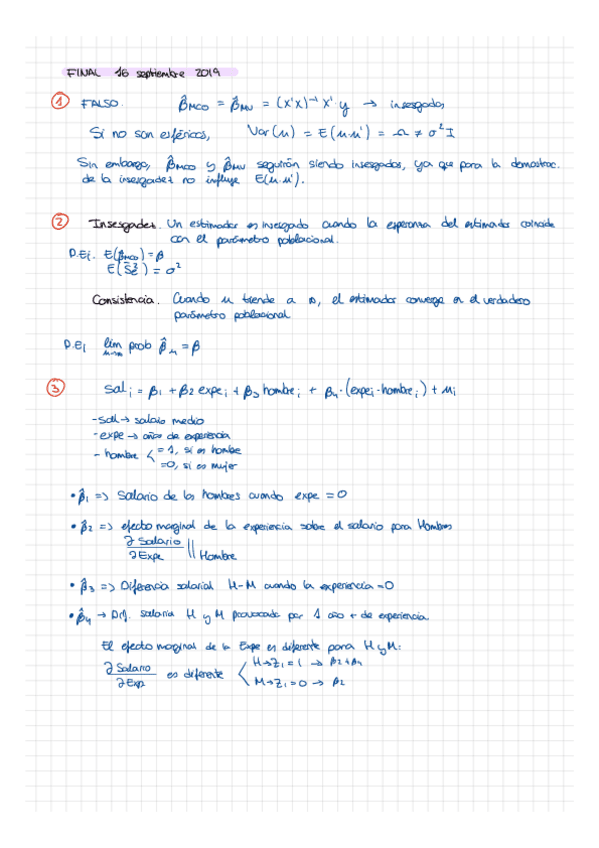 FINAL 16 septiembre 2019
① FALSO. β̂MCO = β̂MV = (X'X)⁻¹ X' y → insesgados
Si no son esféricas, Var(u) = E(u·u') = Ω ≠ σ² I
Sin embargo, β̂MCO y β̂MV seguirán siendo insesgados, ya que para la demostrac.
de la insesgadez no influye E(u·u').
② Insesgadez. Un estimador es insesgado cuando la esperanza del estimador coincide
con el parámetro poblacional.
P.Ej. E(β̂MCO) = β
E(Ŝ²) = σ²
Consistencia. Cuando n tiende a ∞, el estimador converge en el verdadero
parámetro poblacional
P.Ej lím prob β̂n = β
n→∞
③ Sal i = β1 + β2 expe i + β3 hombre i + β4·(expe i·hombre i) + ui
- Sal → salario medio
- expe → años de experiencia
- hombre < = 1, si es hombre
=0, si es mujer
• β̂1 => Salario de los hombres cuando expe = 0
• β̂2 => efecto marginal de la experiencia sobre el salario para Hombres
∂ Salario
∂ Expe || Hombre
• β̂3 => Diferencia salarial H-M cuando la experiencia = 0
• β̂4 → Dif. salarial H y M provocada por 1 año + de experiencia
El efecto marginal de la Expe es diferente para H y M:
∂ Salario es diferente < H→Z1 = 1 → β2+β4
∂ Exp M→Z1 = 0 → β2